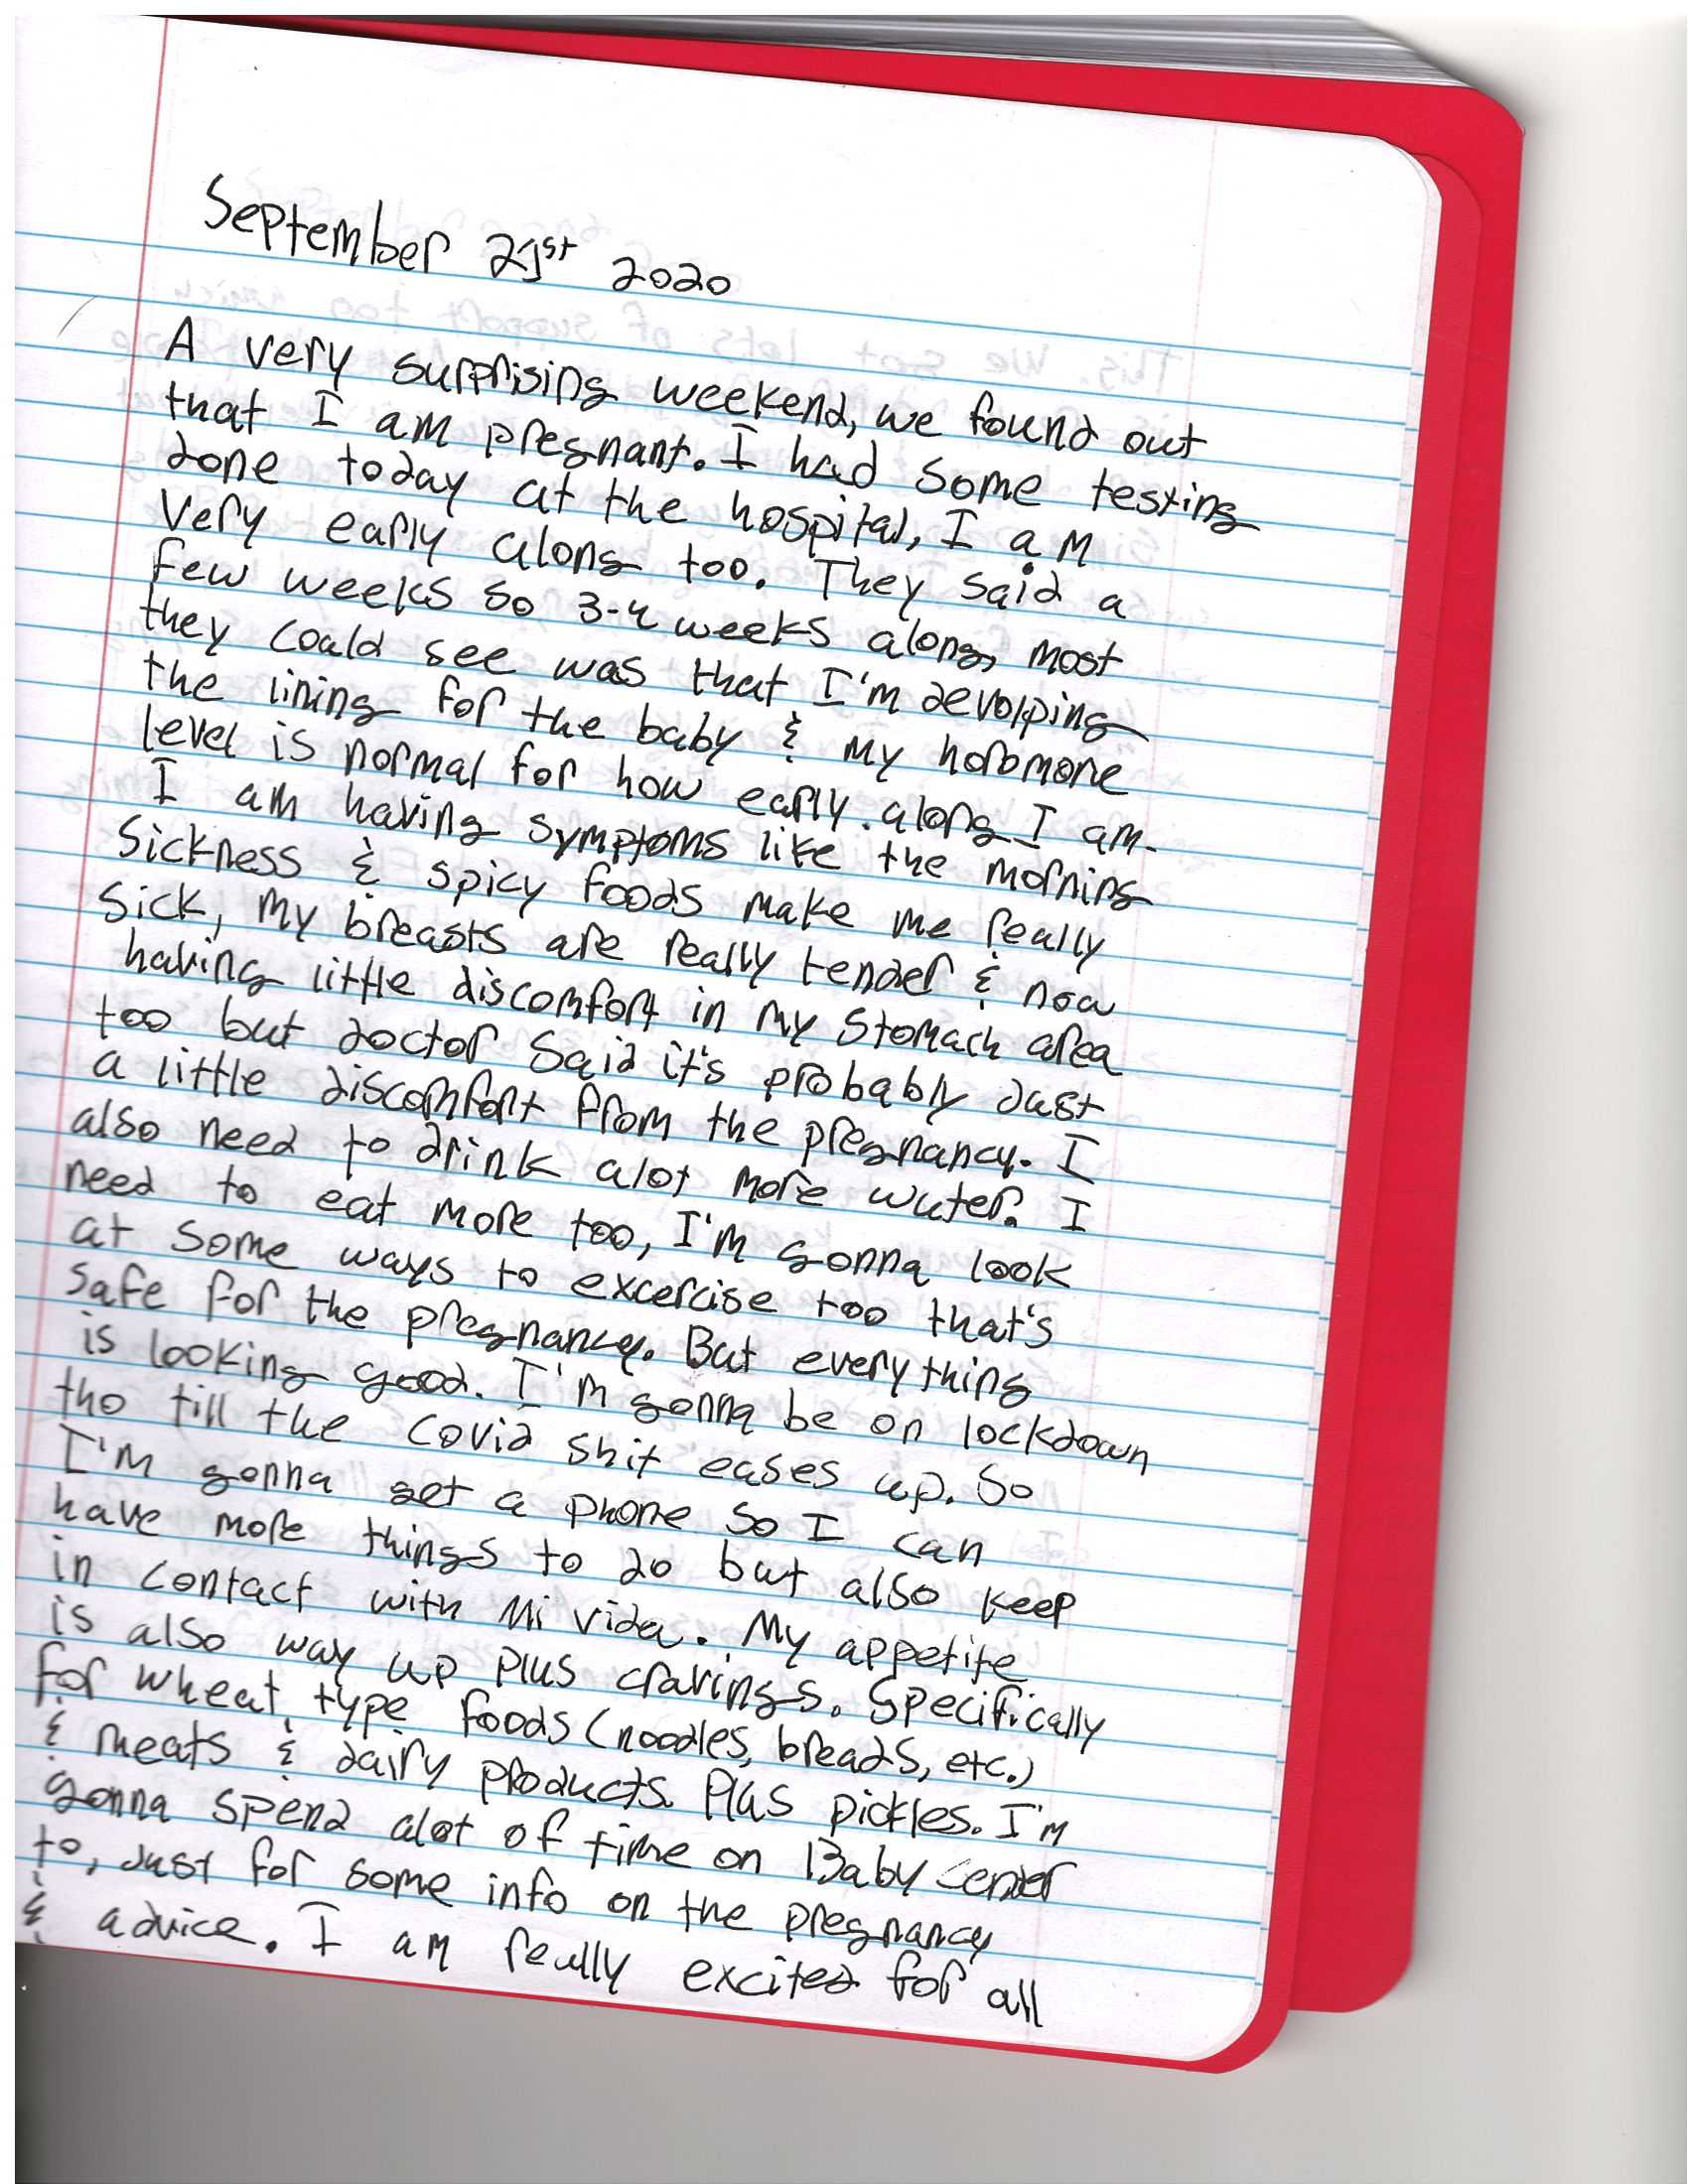 September 21st 2020
A very surprising weekend, we found out
that I am pregnant. I had some testing
done today at the hospital, I am
very early along too. They said a
few weeks so 3-4 weeks along, most
they could see was that I'm devolping
the lining for the baby & my horomone
level is normal for how early along I am.
I am having symptoms like the morning
sickness & spicy foods make me really
sick, my breasts are really tender & now
having little discomfort in my stomach area
too but doctor said it's probably just
a little discomfort from the pregnancy. I
also need to drink alot more water. I
need to eat more too, I'm gonna look
at some ways to excercise too that's
safe for the pregnancy. But everything
is looking good. I'm gonna be on lockdown
tho till the Covid shit eases up. So
I'm gonna get a phone so I can
have more things to do but also keep
in contact with Mi vida. My appetite
is also way up plus cravings. Specifically
for wheat type foods (noodles, breads, etc.)
& meats & dairy products. Plus pickles. I'm
gonna spend alot of time on Baby Center
to, just for some info on the pregnancy
& advice. I am really excited for all